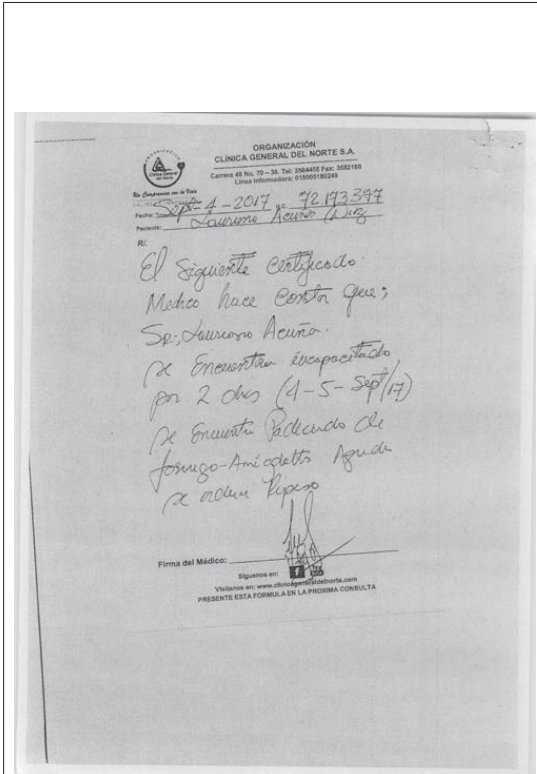 ORGANIZACIÓN
CLÍNICA GENERAL DEL NORTE S.A.
Carrera 48 No. 70 – 38. Tel: 3564455 Fax: 3582168
Línea Informadora: 018000180249
Clínica General
del Norte
Un Compromiso con la Vida
Fecha: Sept - 4 - 2017 72193397
Paciente: Laureano Acuña
R/.
El Siguiente Certificado
Medico hace Constar que;
Sr; Laureano Acuña.
se Encuentra incapacitado
por 2 dias (4-5-Sept/17)
se Encuentra Padeciendo de
Faringo-Amigdalitis Aguda
se orden Reposo
Firma del Médico:
Síguenos en:
Visítanos en: www.clinicageneraldelnorte.com
PRESENTE ESTA FORMULA EN LA PROXIMA CONSULTA